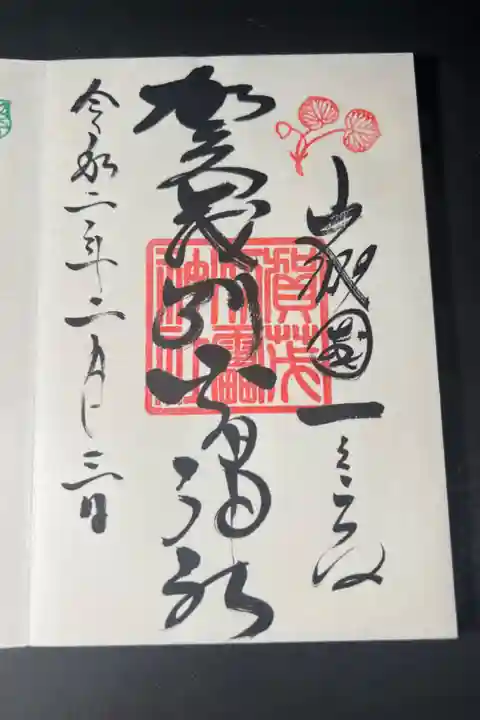 山城國一之宮
賀茂別雷神社
賀茂別雷神社
令和二年二月二三日